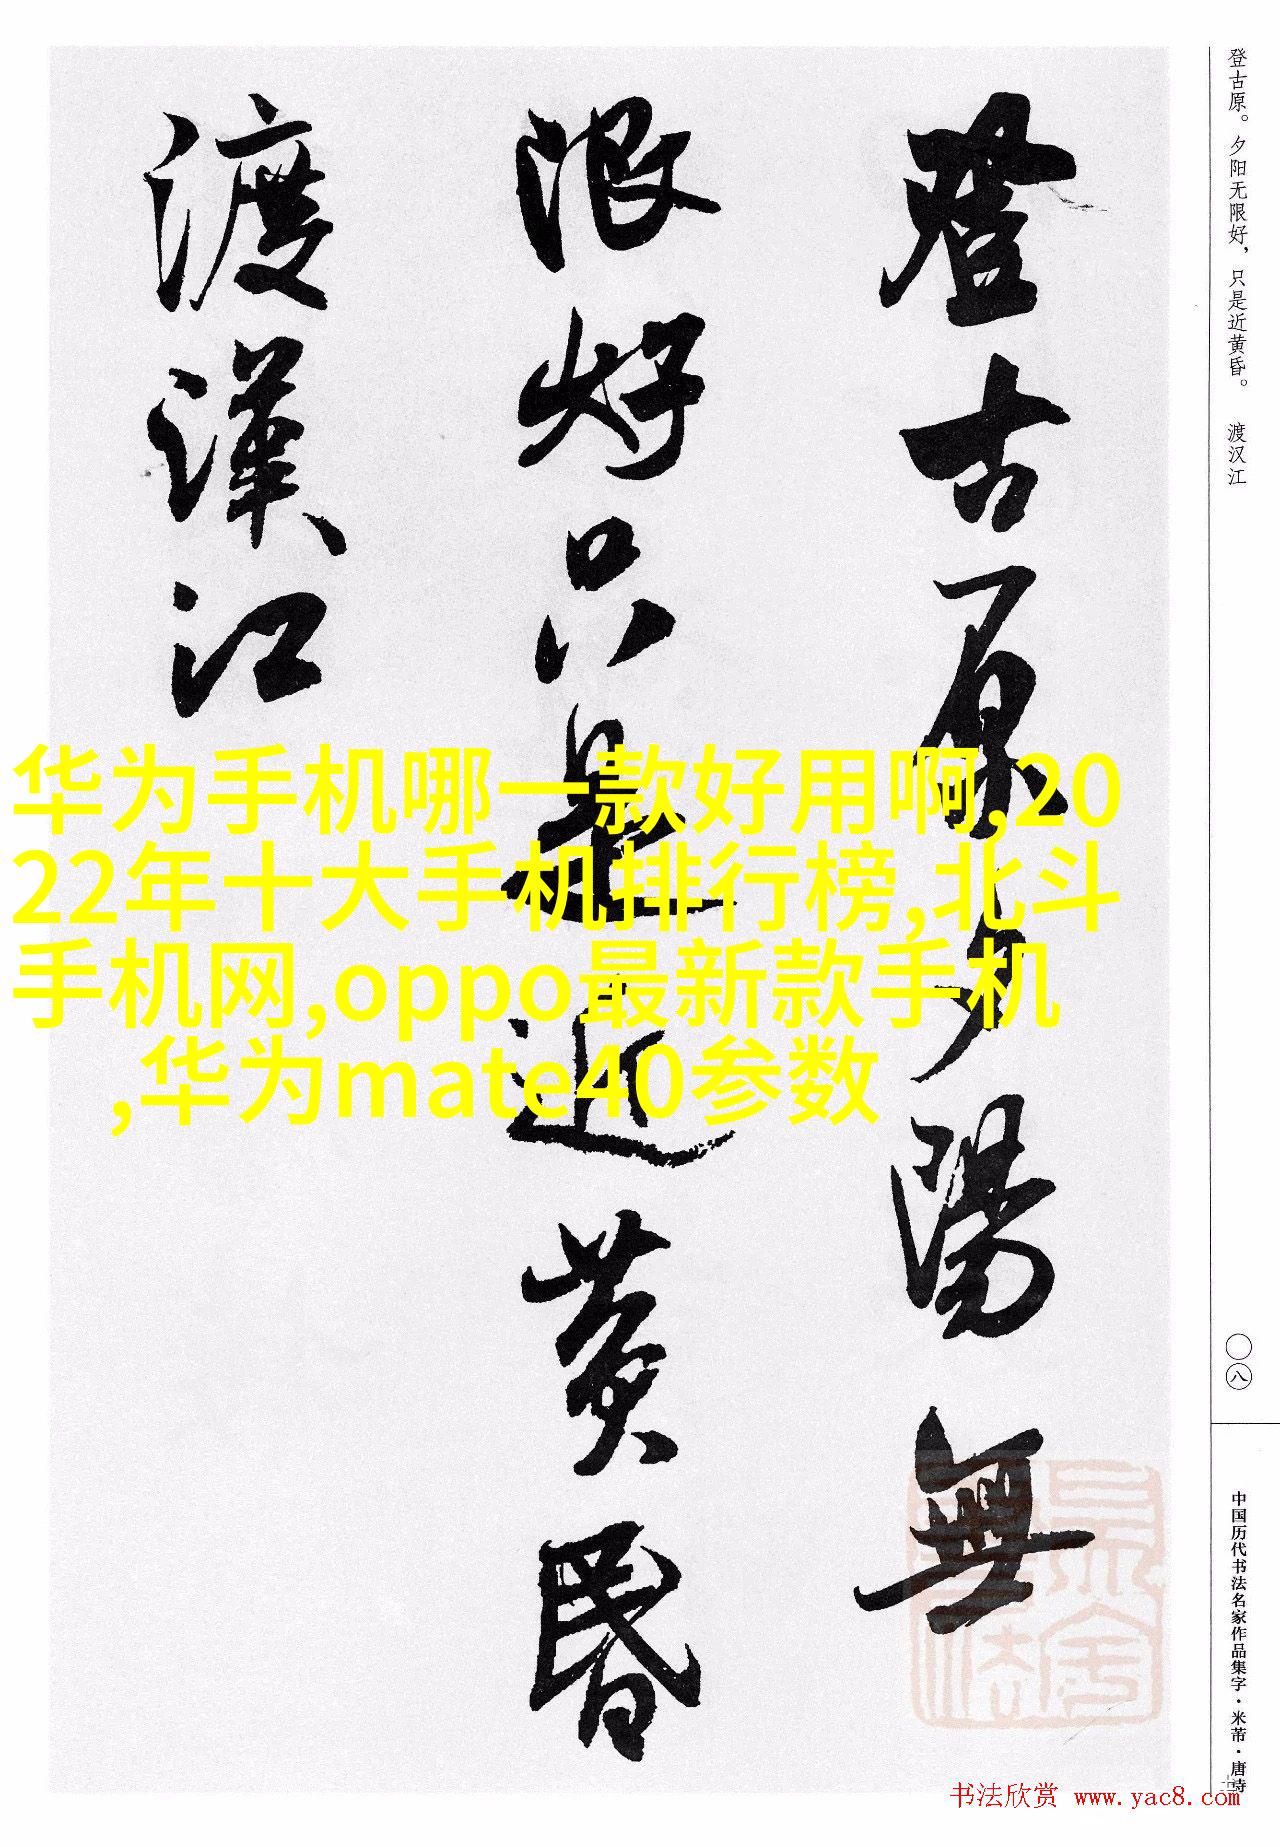 登古原夕陽無
限好只是近黄昏
渡漢江
登古原。夕阳无限好，只是近黄昏。 渡汉江
〇八
中国历代书法名家作品集字·米芾·唐诗
华为手机哪一款好用啊,20
22年十大手机排行榜,北斗
手机网,oppo最新款手机
,华为mate40参数
书法欣赏 www.yac8.com